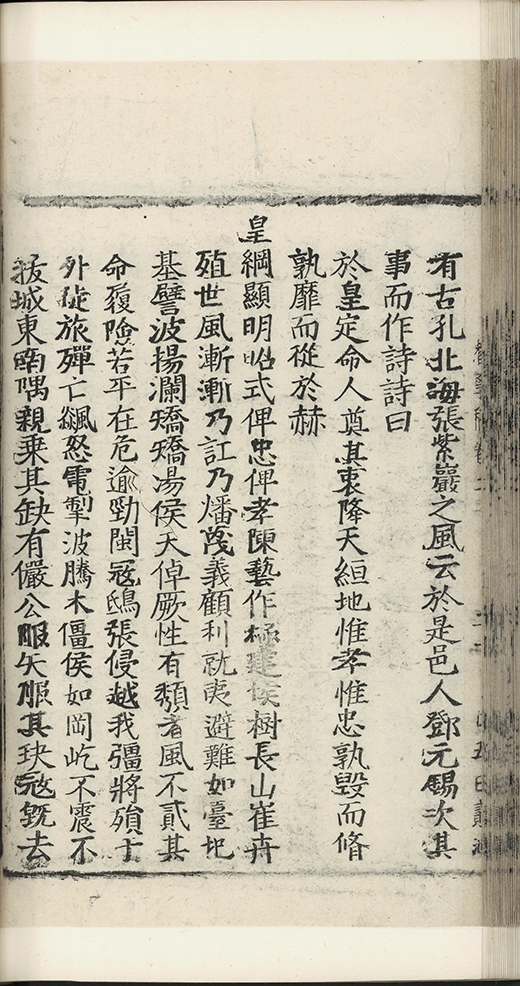 有古孔北海張紫巖之風云於是邑人鄧元錫次其
事而作詩詩曰
於皇定命人奠其衷降天絙地惟孝惟忠孰毀而脩
孰靡而從於赫
皇綱顯明昭式俾忠俾孝陳藝作極建侯樹長山崔卉
殖世風漸漸乃訌乃燔蔑義顧利就夷避難如臺圯
基譬波揚瀾矯矯湯侯天倬厥性有頹者風不貳其
命履險若平在危逾勁閩冦鴟張侵越我疆將殞于
外徒旅殫亡飆怒電掣波騰木僵侯如岡屹不震不
拔城東南隅親乗其缺有儼公服矢服其玦冦既去